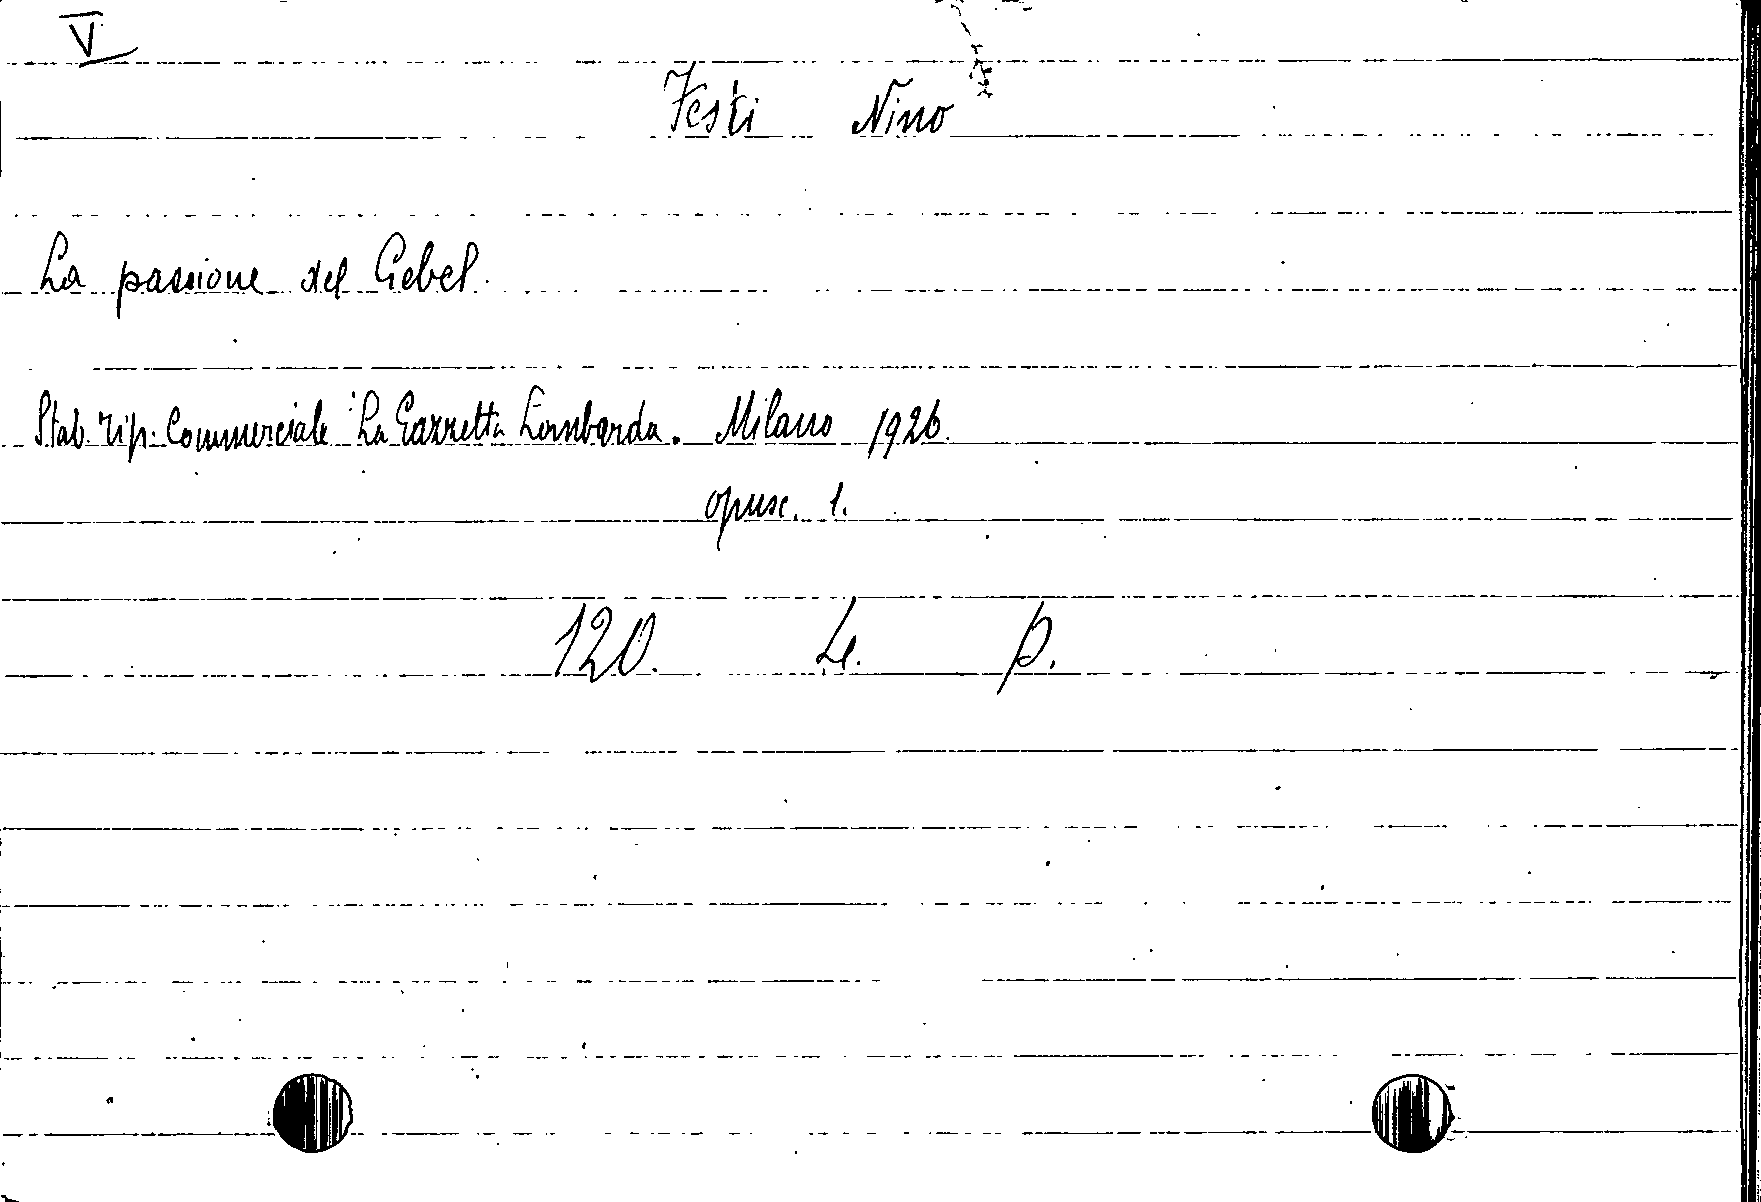 V
Festi Nino
La passione del Gebel.
Stab. Tip. Commerciale "La Gazzetta Lombarda. Milano 1926.
opusc. 1.
120. Le. P.